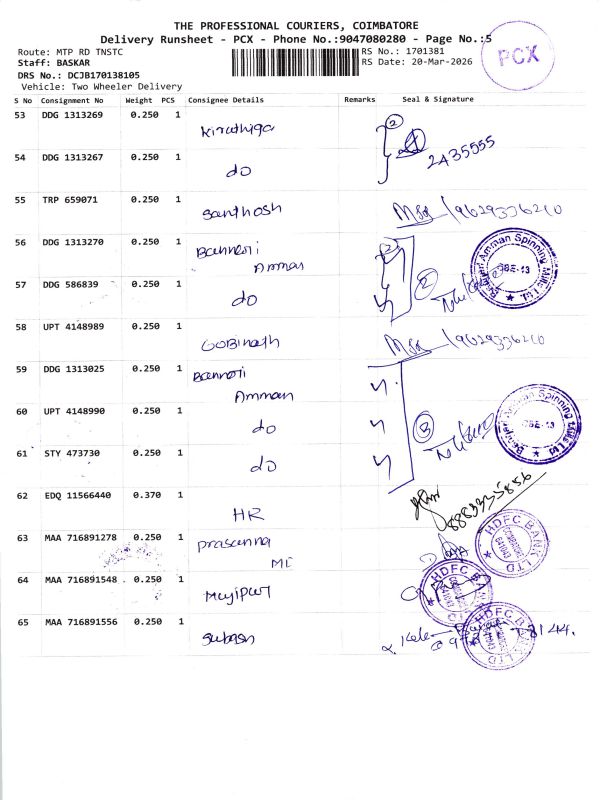 THE PROFESSIONAL COURIERS, COIMBATORE
Delivery Runsheet - PCX - Phone No.:9047080280 - Page No.:5
Route: MTP RD TNSTC
RS No.: 1701381
Staff: BASKAR
RS Date: 20-Mar-2026
DRS No.: DCJB170138105
Vehicle: Two Wheeler Delivery
PCX
S No Consignment No Weight PCS Consignee Details Remarks Seal & Signature
53 DDG 1313269 0.250 1 Kiruthiga 2
54 DDG 1313267 0.250 1 do 2435555
55 TRP 659071 0.250 1 Santhosh 9629336210
56 DDG 1313270 0.250 1 Bannari
Amman
57 DDG 586839 0.250 1 do
Bannari Amman Spinning Mills Ltd.
58 UPT 4148989 0.250 1 Gobinath 9629336210
59 DDG 1313025 0.250 1 Bannari
Amman
60 UPT 4148990 0.250 1 do 3
61 STY 473730 0.250 1 do
Bannari Amman Spinning Mills Ltd.
62 EDQ 11566440 0.370 1 HR 8883335856
63 MAA 716891278 0.250 1 Prasanna
HDFC BANK LTD
64 MAA 716891548 0.250 1 Mujipur
HDFC BANK LTD
65 MAA 716891556 0.250 1 Subash
HDFC BANK LTD